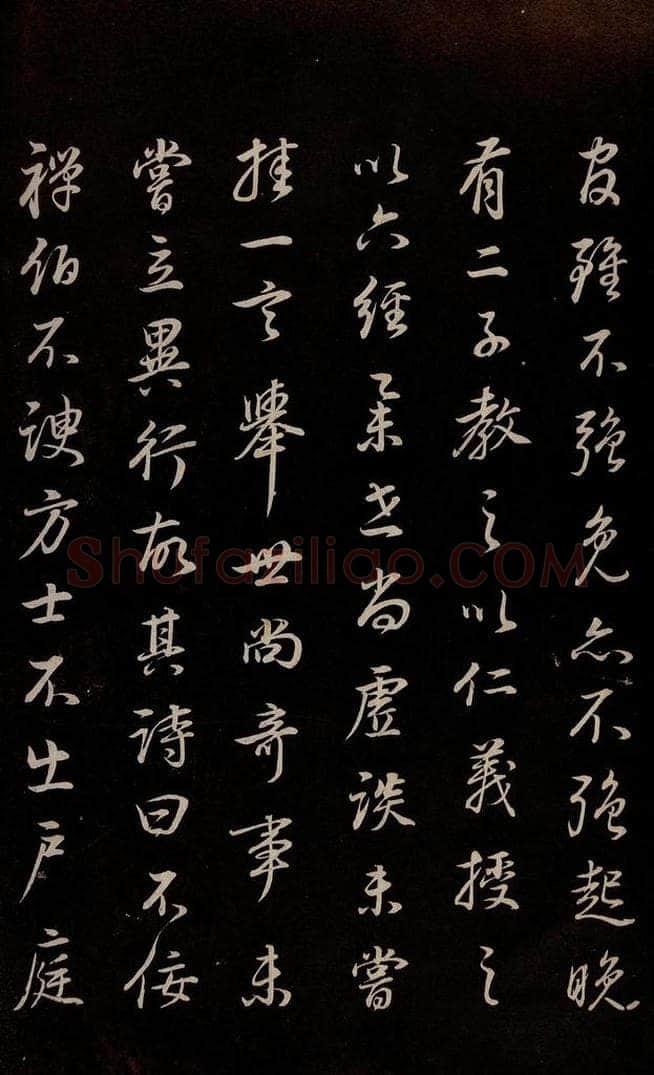 官雖不強免亦不強起晚
有二子教之以仁義授之
以六經舉世尚虛談未嘗
挂一言舉世尚奇事未
嘗立異行故其詩曰不佞
禪伯不諛方士不出戶庭
Shufaziliao.COM